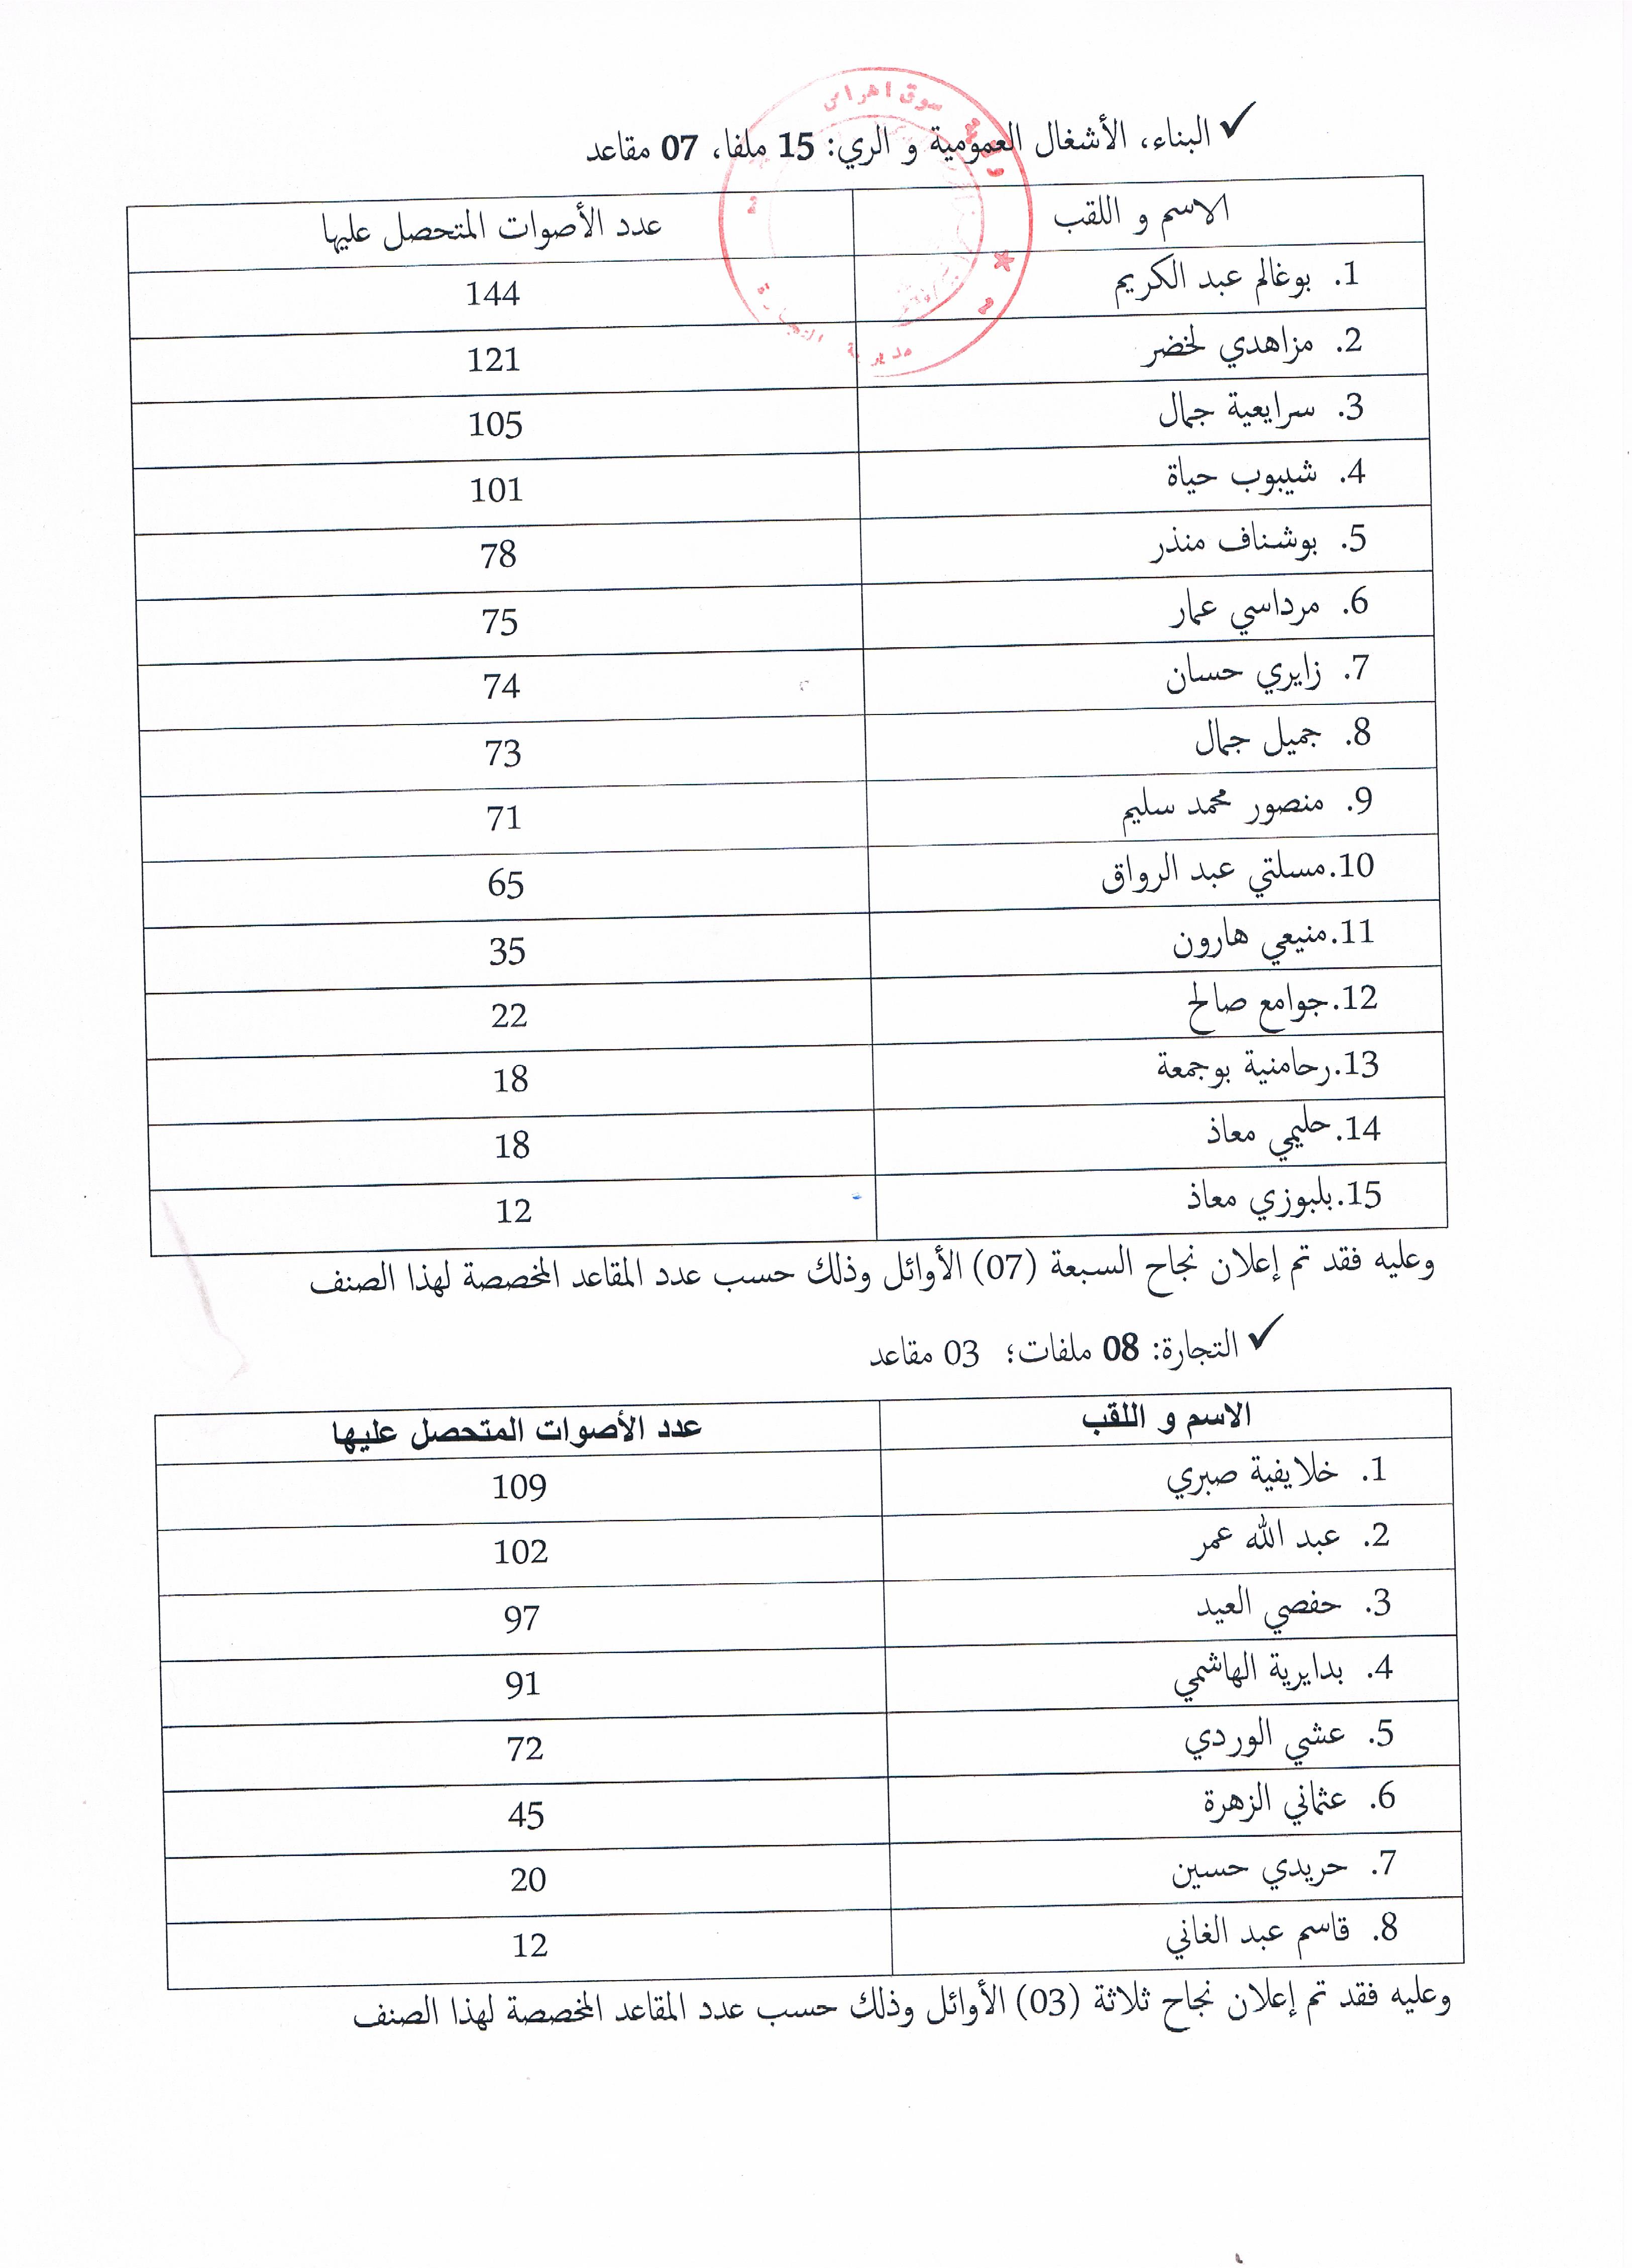 سوق اهراس
مديرية التجارة
✓ البناء، الأشغال العمومية و الري: 15 ملفا، 07 مقاعد
الاسم و اللقب عدد الأصوات المتحصل عليها
1. بوغالم عبد الكريم 144
2. مزاهدي لخضر 121
3. سرايعية جمال 105
4. شيبوب حياة 101
5. بوشناف منذر 78
6. مرداسي عمار 75
7. زايري حسان 74
8. جميل جمال 73
9. منصور محمد سليم 71
10. مسلتي عبد الرواق 65
11. منيعي هارون 35
12. جوامع صالح 22
13. رحامنية بوجمعة 18
14. حليمي معاذ 18
15. بلبوزي معاذ 12
وعليه فقد تم إعلان نجاح السبعة (07) الأوائل وذلك حسب عدد المقاعد المخصصة لهذا الصنف
✓ التجارة: 08 ملفات؛ 03 مقاعد
الاسم و اللقب عدد الأصوات المتحصل عليها
1. خلايفية صبري 109
2. عبد الله عمر 102
3. حفصي العيد 97
4. بدايرية الهاشمي 91
5. عشي الوردي 72
6. عثماني الزهرة 45
7. حريدي حسين 20
8. قاسم عبد الغاني 12
وعليه فقد تم إعلان نجاح ثلاثة (03) الأوائل وذلك حسب عدد المقاعد المخصصة لهذا الصنف